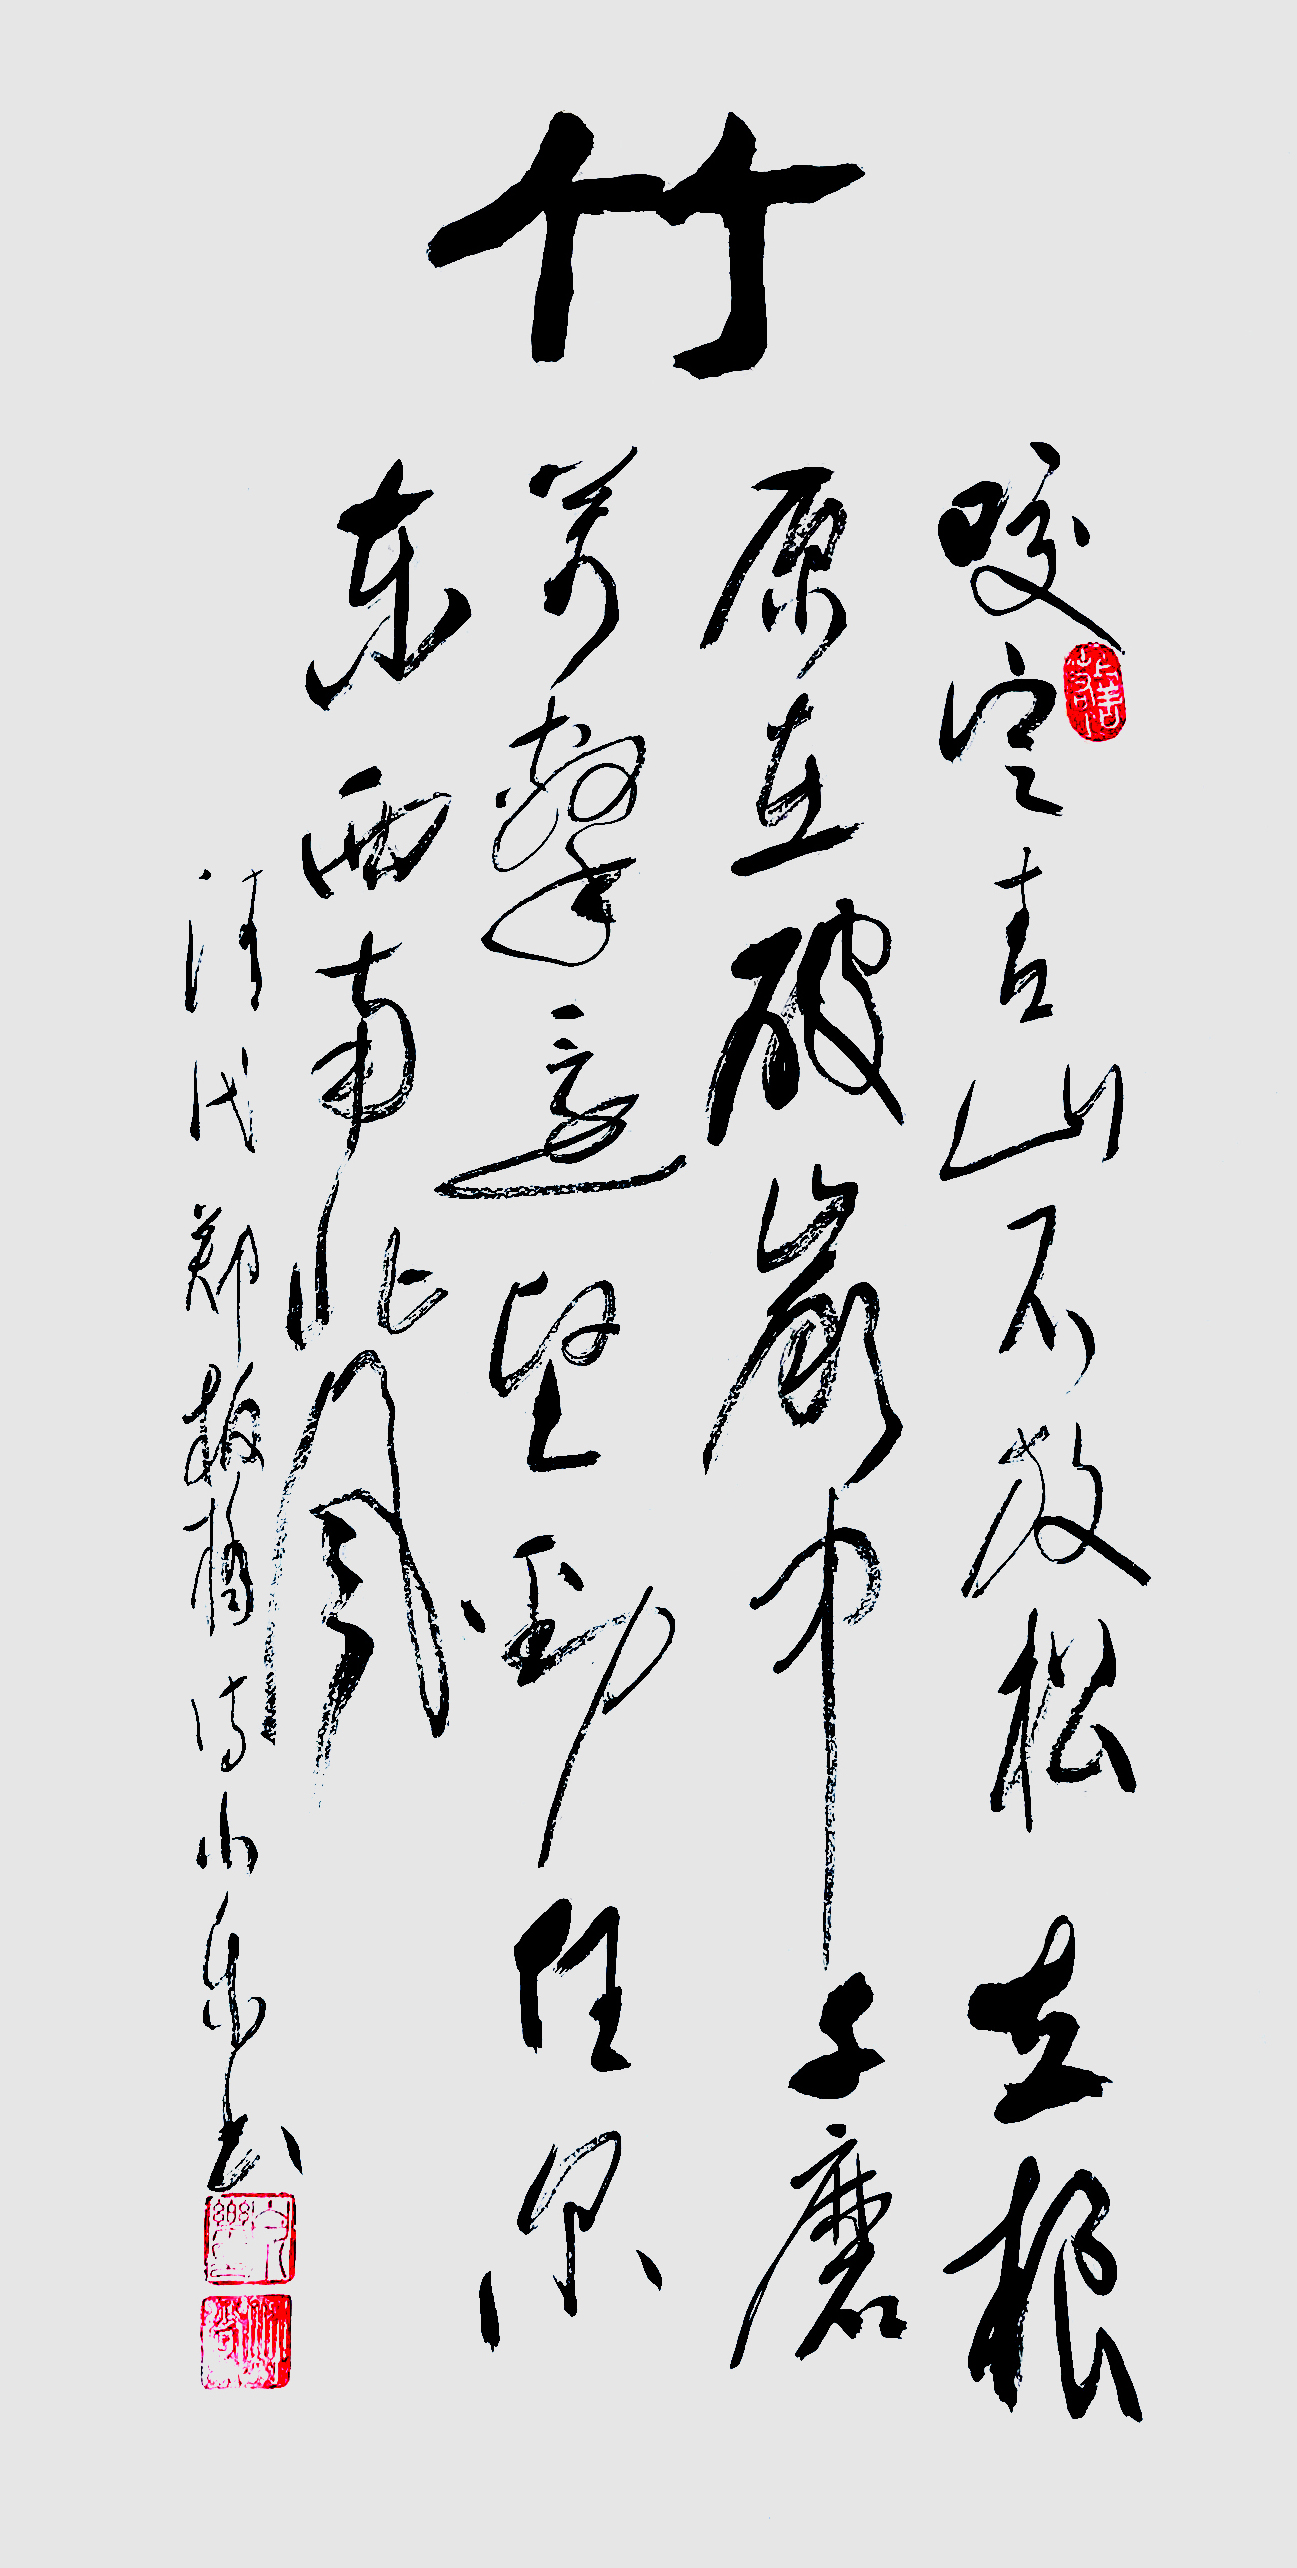 竹
咬定青山不放松立根
原在破巖中千磨
萬擊還坚勁任尔
东西南北风
清代郑板橋诗小乐书